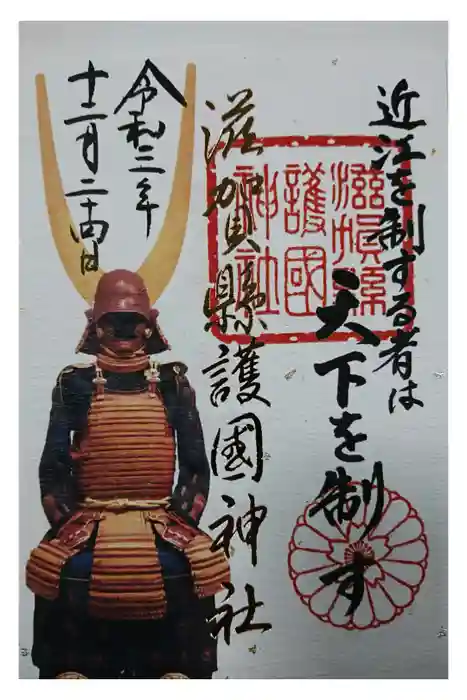 近江を制する者は
天下を制す
滋賀縣
護國
神社
滋賀縣護國神社
令和三年
十二月二十四日